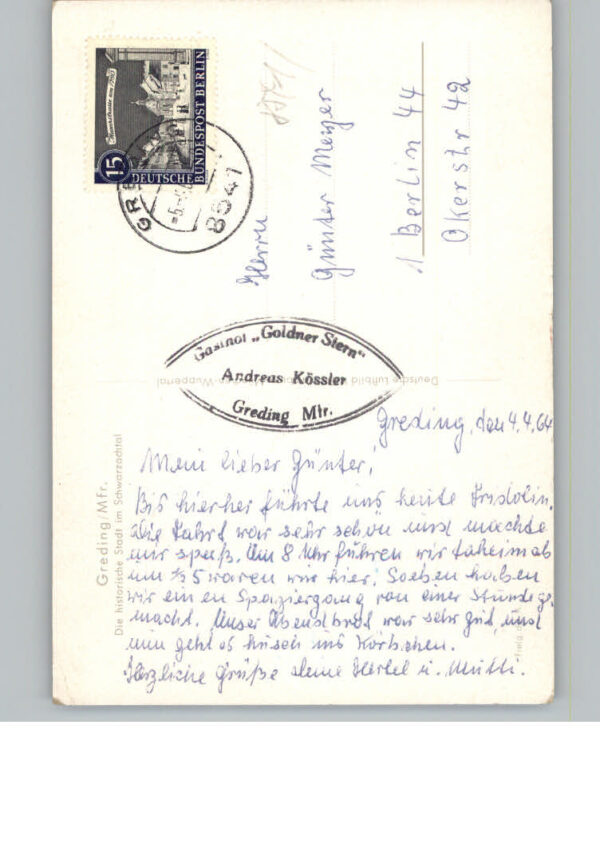 15
DEUTSCHE
BUNDESPOST BERLIN
GREDING
8541
Herrn
Günter Meyer
1 Berlin 44
Okerstr 42
Gasthof „Goldner Stern“
Andreas Kössler
Greding Mfr.
Deutsche Luftbild Wuppertal
Greding/Mfr.
Die historische Stadt im Schwarzachtal
Greding, den 4.4.64
Mein lieber Günter!
Bis hierher führte uns heute Fridolin.
Die Fahrt war sehr schön und machte
mir spaß. Um 8 Uhr führen wir daheim ab
um ½5 waren wir hier. Soeben haben
wir einen Spaziergang von einer Stunde ge-
macht. Unser Abendbrot war sehr gut, und
nun geht es husch ins Körbchen.
Herzliche Grüße deine Hertel u. Mutti.